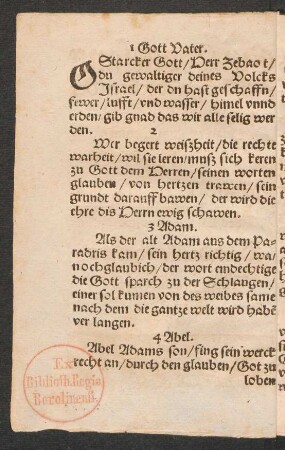 1 Gott Vater.
O Starcker Gott/Herr Zebaot/
du gewaltiger deines Volcks
Israel/ der du hast geschaffn/
fewer/lufft/vnd wasser/ himel vnnd
erden/ gib gnad das wir alle selig wer
den. 2
Wer begert weißheit/die rechte
warheit/wil sie leren/muß sich keren
zu Gott dem Herren/seinen worten
glauben/ von hertzen trawen/sein
grundt darauff bawen/ der wird die
ehre dis Herrn ewig schawen.
3 Adam.
Als der alt Adam aus dem Pa-
radris kam/ sein hertz richtig/ wa-
nochglaubich/ der wort eindechtige
die Gott sparch zu der Schlangen/
einer sol kumen von des weibes same
nach dem die gantze welt wird habē
ver langen.
4 Abel.
Abel Adams son/fing sein werck
recht an/durch den glauben/Got zu
loben
Ex
Biblioth. Regia
Berolinensi.